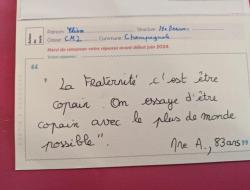 Classe: CM2 Commune: Champagnole
Merci de retourner votre réponse avant début juin 2024.
"La Fraternité c'est être
copain. On essaye d'être
copain avec le plus de monde
possible".
Me A., 83 ans